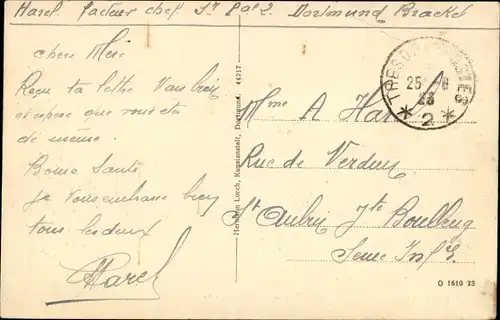 Harel. facteur chef. Sr Pal 2. Dortmund Brackel
chère Mère
Reçu ta lettre Vais bien
et espère que vous êtes
de même.
Bonne Santé
je vous embrasse bien
tous les deux
Marcel
Hermann Lorch, Kunstanstalt, Dortmund. 44217
TRESOR ET POSTES
25
23
* 2 *
Mme A Harel
Rue de Verdun
St Aubin Jte Boulleng
Seine Infre
O 1610 23